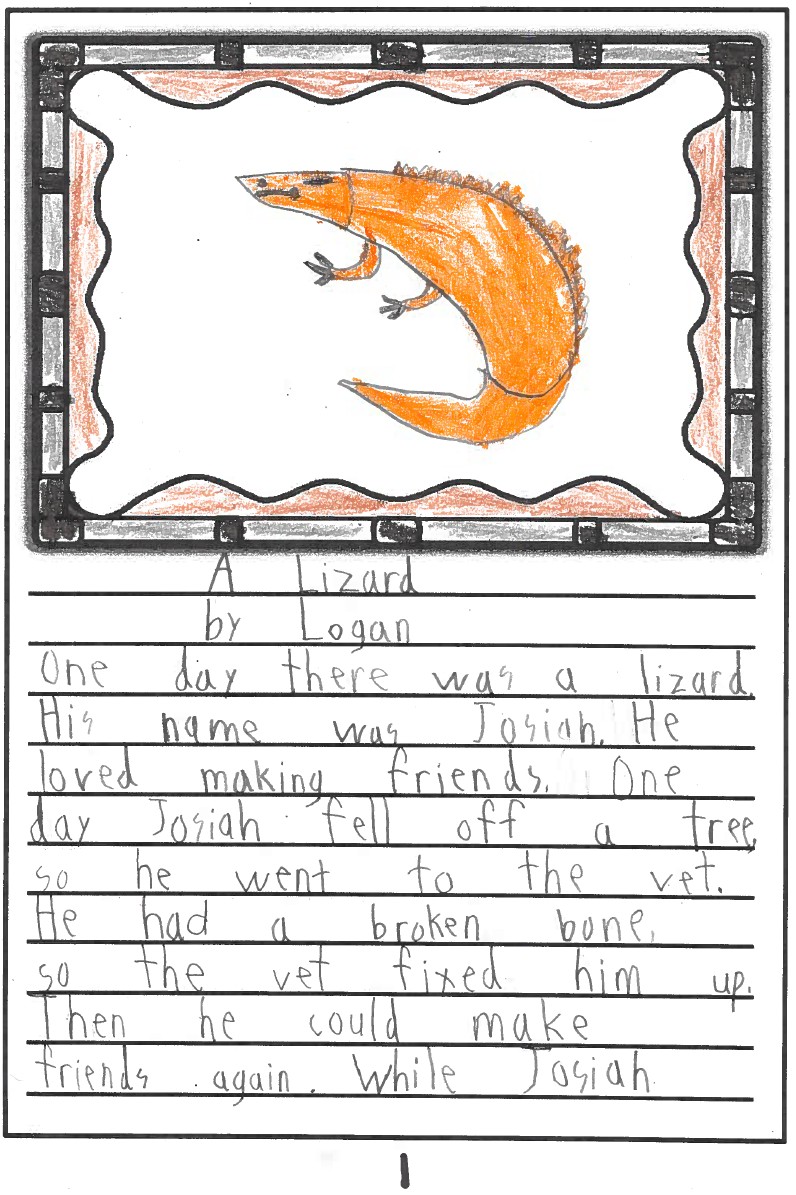 A Lizard
by Logan
One day there was a lizard.
His name was Josiah. He
loved making friends. One
day Josiah fell off a tree,
so he went to the vet.
He had a broken bone,
so the vet fixed him up.
Then he could make
friends again. While Josiah
1